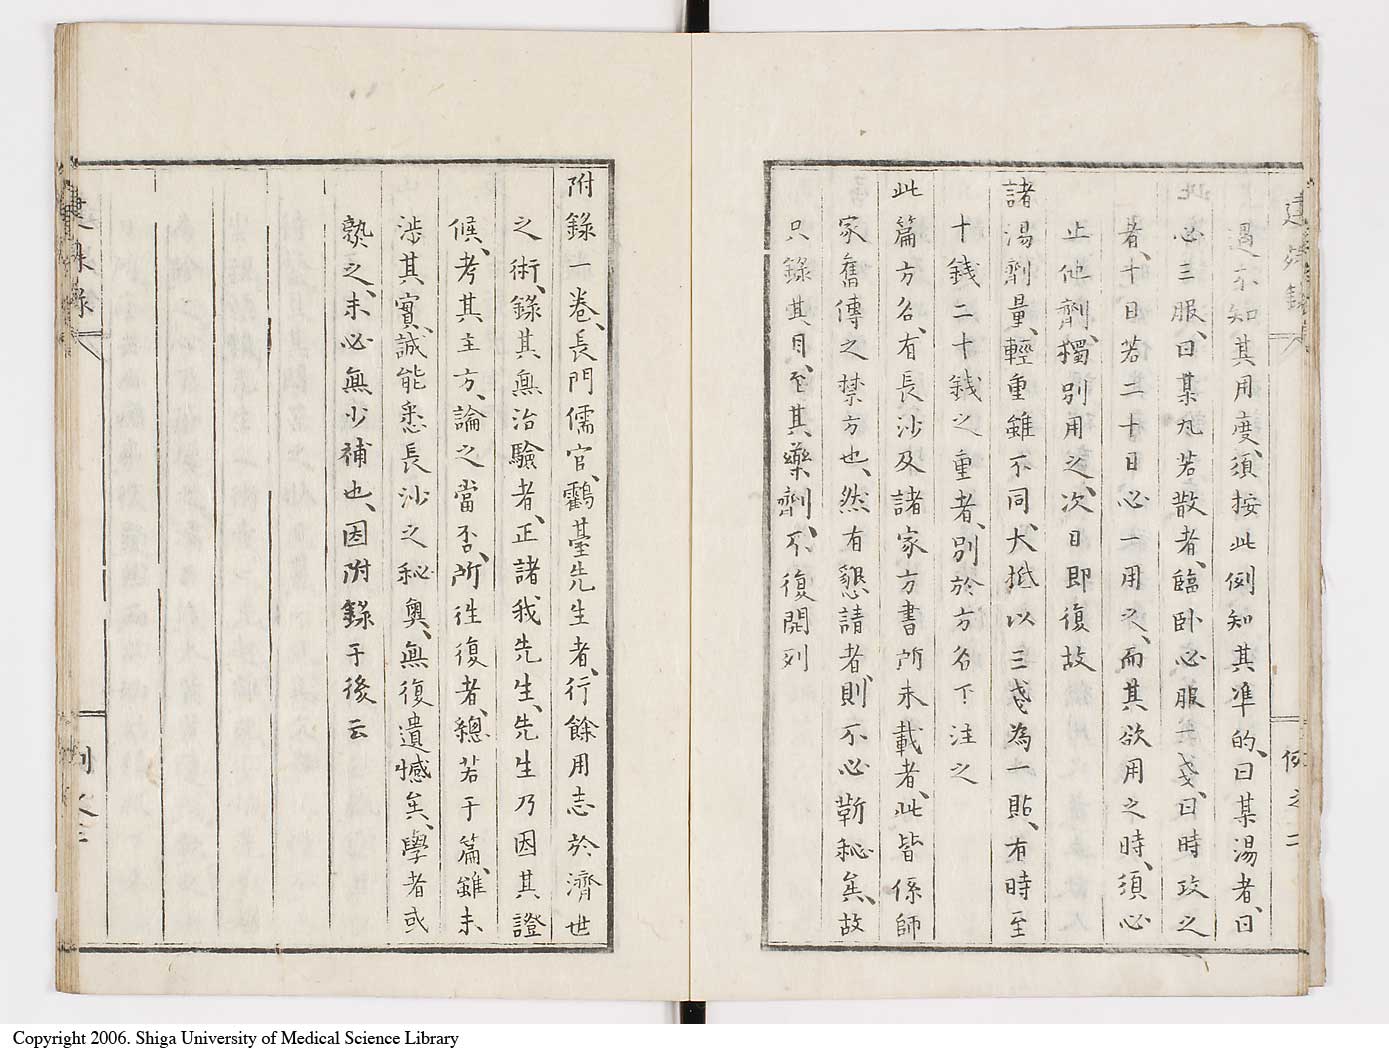 建殊録
例之二
過不知其用度、須按此例知其準的、曰某湯者、日
必三服、曰某丸若散者、臨卧必服若干戔、曰時攻之
者、十日若二十日必一用之、而其欲用之時、須必
止他劑、獨別用之、次日即復故
諸湯劑量、輕重雖不同、大抵以三戔為一貼、有時至
十錢二十錢之重者、別於方名下注之
此篇方名、有長沙及諸家方書所未載者、此皆係師
家舊傳之禁方也、然有懇請者、則不必靳秘矣、故
只錄其目、至其藥劑、不復開列
附錄一卷、長門儒官、鸖䑓先生者、行餘用志於濟世
之術、錄其無治驗者、正諸我先生、先生乃因其證
候、考其主方、論之當否、所徃復者、總若于篇、雖未
涉其實、誠能悉長沙之秘奧、無復遺憾矣、學者或
熟之、未必無少補也、因附錄于後云
建殊録
例之三
Copyright 2006. Shiga University of Medical Science Library